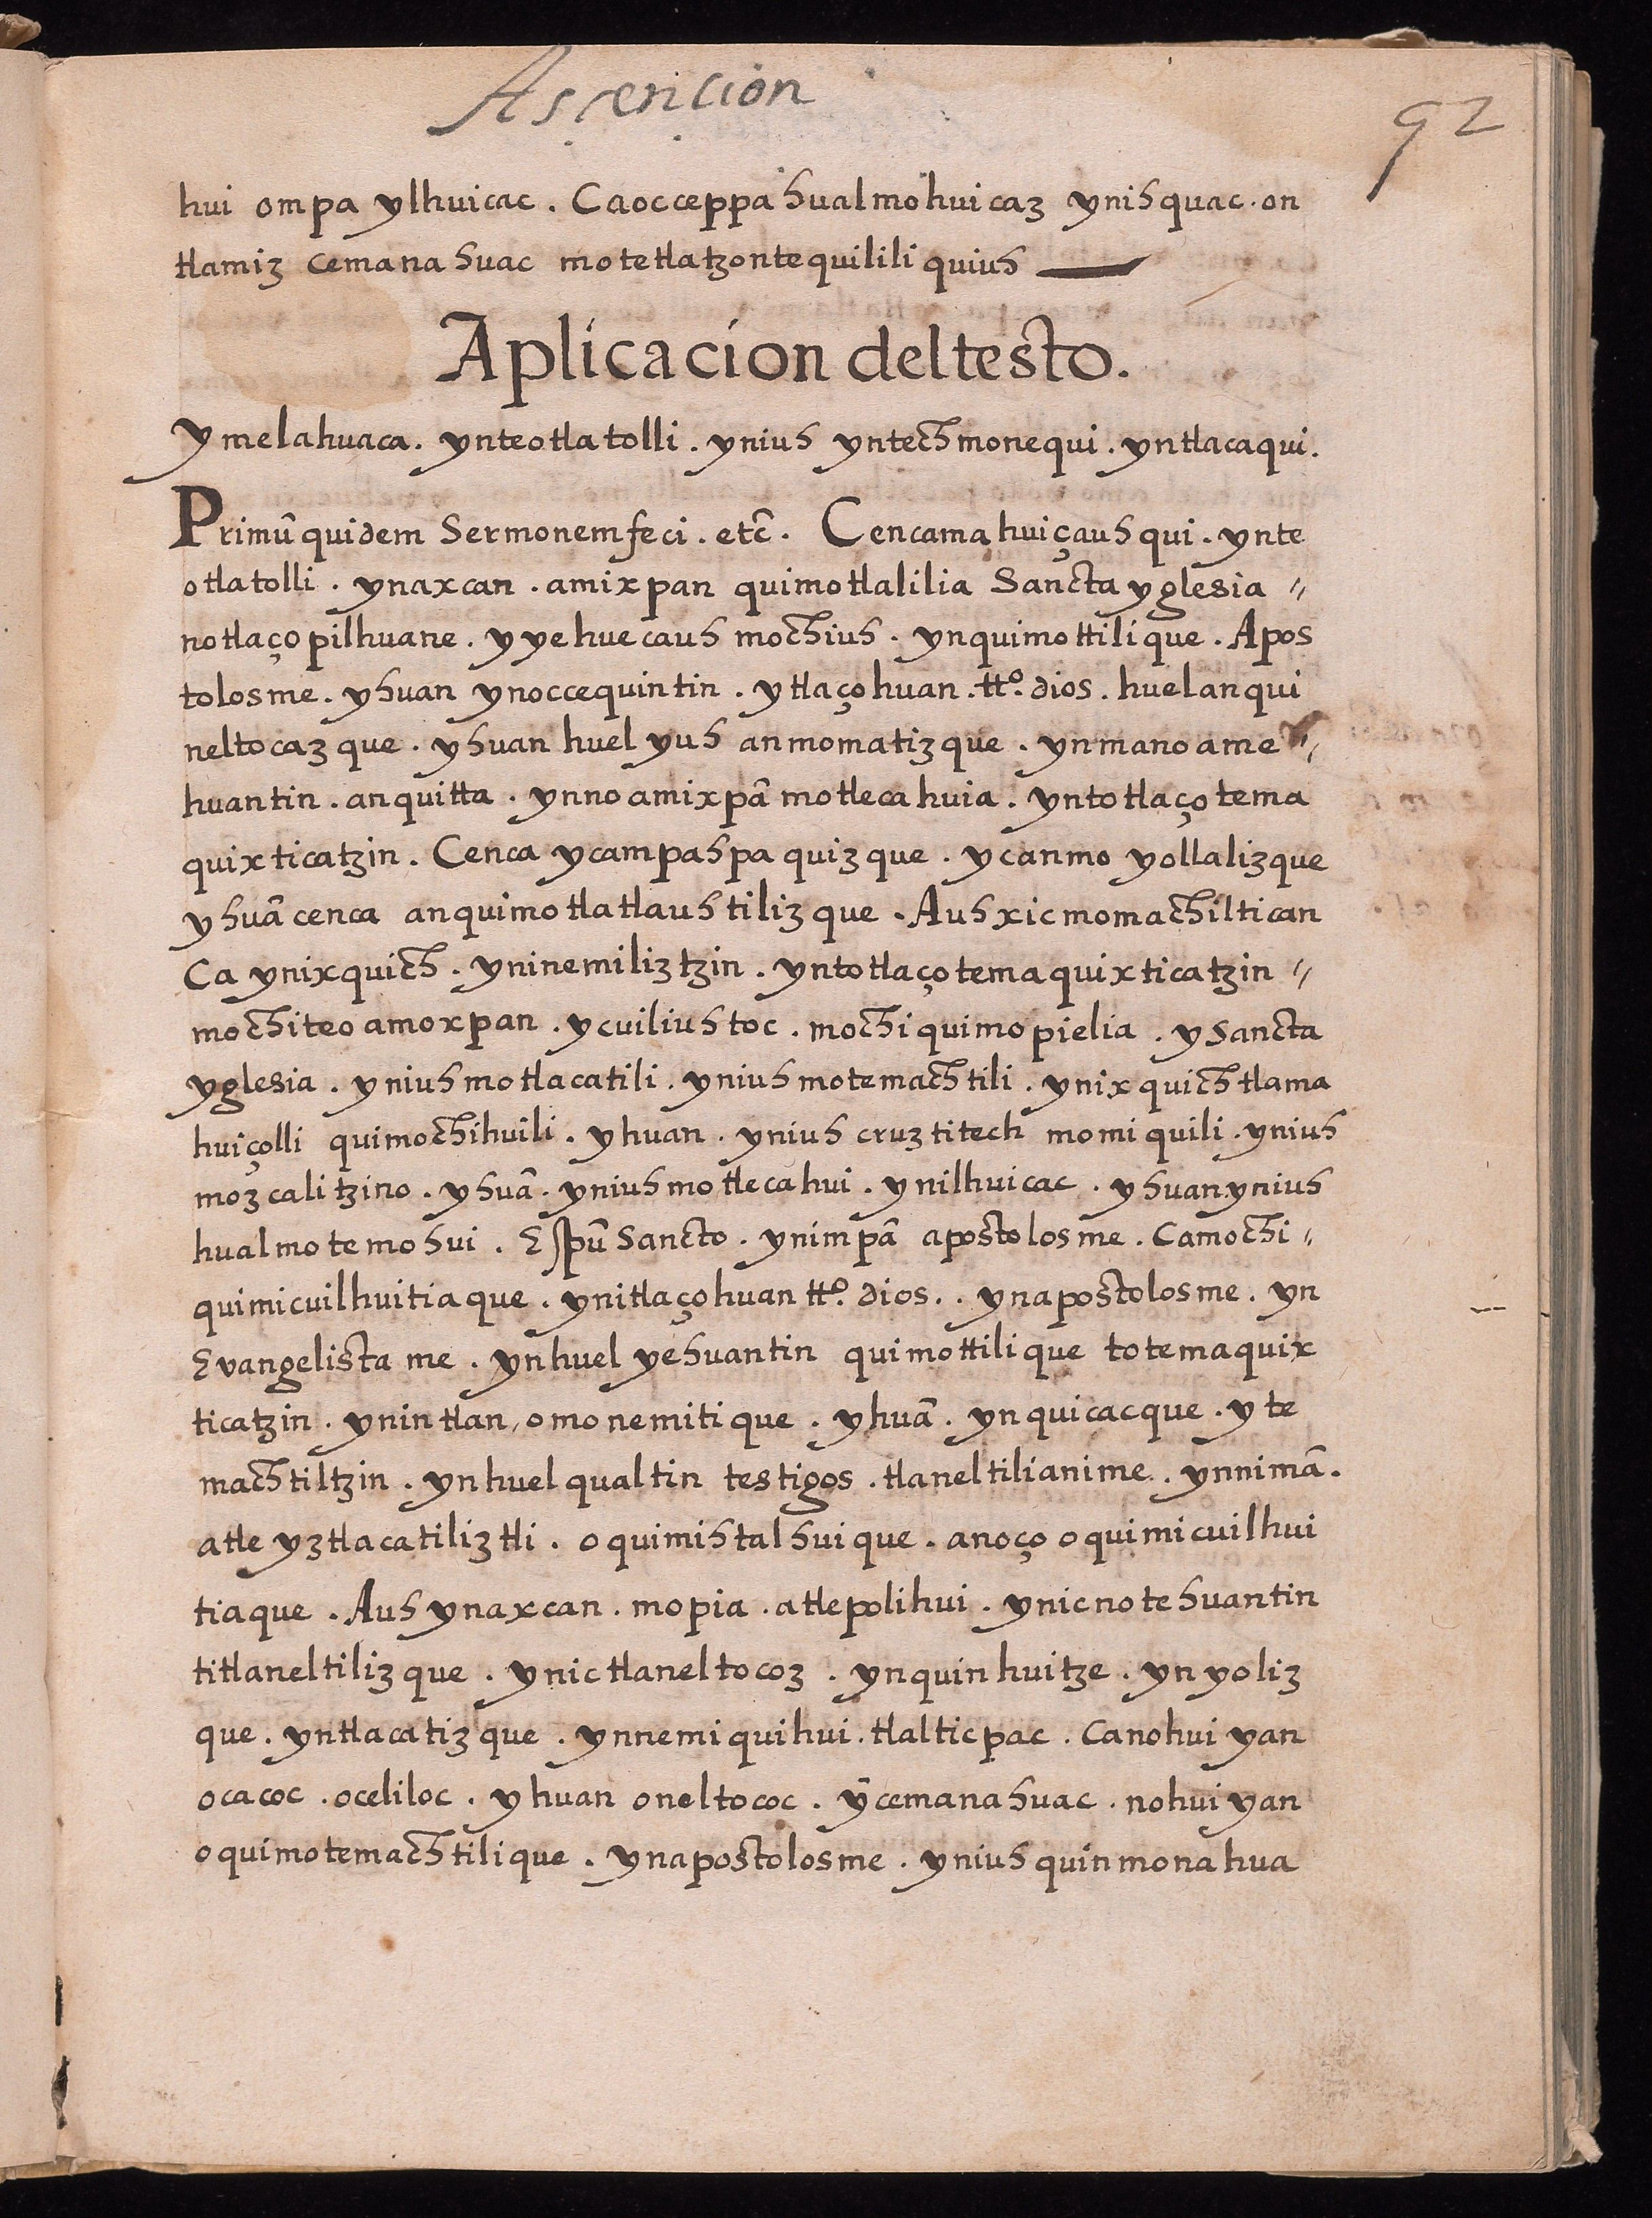 Ascencion
92
hui ompa ylhuicac . Caocceppa hualmohuicaz ynihquac . on
tlamiz cemanahuac motetlatzontequilili quiuh
Aplicacion del testo.
Ymelahuaca . ynteotlatolli . yniuh yntech monequi . yntlacaqui .
Primū quidem Sermonem feci . etc̄ . Cencamahuiçauhqui . ynte
otlatolli . ynaxcan . amixpan quimotlalilia Sancta yglesia〃
notlaçopilhuane . yyehuecauh mochiuh . ynquimottilique . Apos
tolosme . yhuan ynoccequintin . ytlaçohuan . tt.º dios . huelanqui
neltocazque . yhuan huel yuh anmomatizque . ynmanoame〃
huantin . anquitta . ynnoamixpā motlecahuia . yntotlaçotema
quixticatzin . Cenca ycampahpaquizque . ycanmo yollalizque
yhuā cenca anquimotlatlauhtilizque . Auh xicmomachiltican
Ca ynixquich . yninemiliztzin . yntotlaçotemaquixticatzin〃
mochiteoamoxpan . ycuiliuhtoc . mochi quimopielia . ySancta
yglesia . yniuhmotlacatili . yniuhmotemachtili . ynixquich tlama
huiçolli quimochihuili . yhuan . yniuh cruztitech momiquili . yniuh
mozcalitzino . yhuā . yniuhmotlecahui . ynilhuicac . yhuanyniuh
hualmotemohui . Espū Sancto . ynimpā apostolosme . Camochi〃
quimicuilhuitiaque . ynitlaçohuan tt.º dios . . ynapostolosme . yn
Evangelistame . ynhuel yehuantin quimottilique totemaquix
ticatzin . ynintlan, omonemitique . yhuā . ynquicacque . yte
machtiltzin . ynhuel qualtin testigos . tlaneltilianime . ynnimā .
atle yztlacatiliztli . oquimihtalhuique . anoço oquimicuilhui
tiaque . Auh ynaxcan . mopia . atlepolihui . ynicnotehuantin
titlaneltilizque . ynictlaneltocoz . ynquinhuitze . ynyoliz
que . yntlacatizque . ynnemiquihui . tlalticpac . Canohuiyan
ocacoc . oceliloc . yhuan oneltococ . ȳcemanahuac . nohuiyan
oquimotemachtilique . ynapostolosme . yniuh quinmonahua